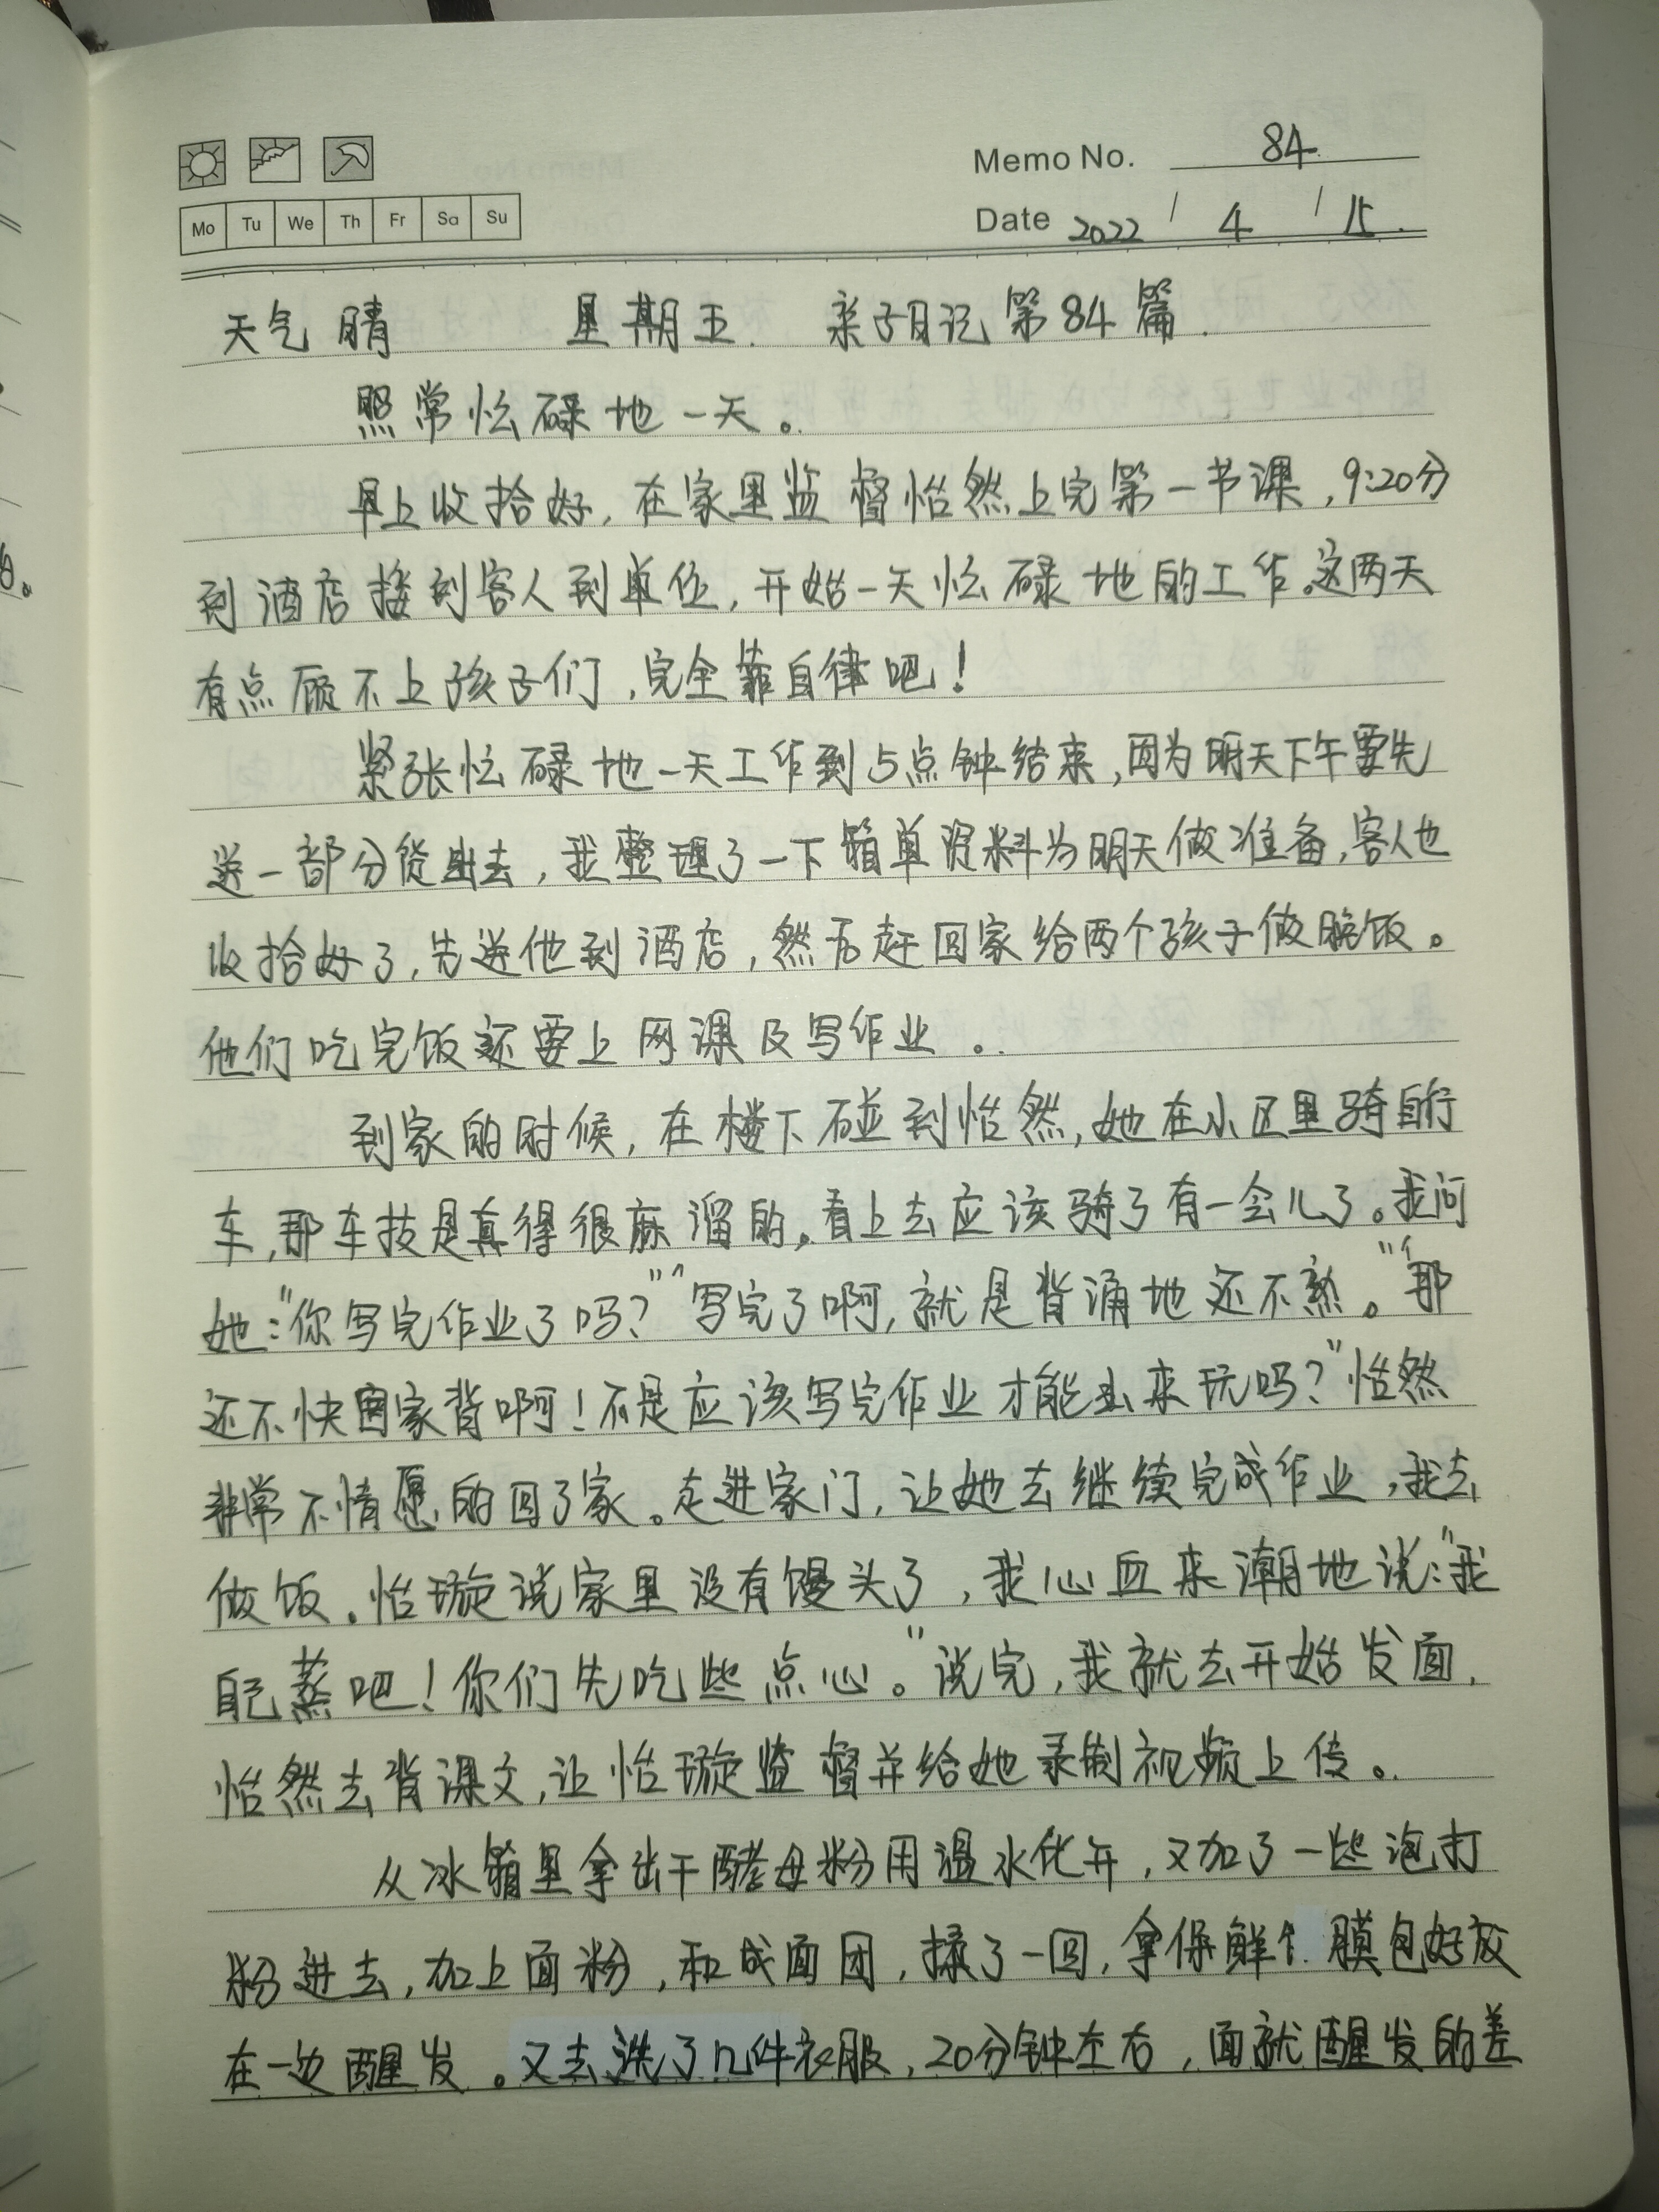 Memo No. 84.
Mo Tu We Th Fr Sa Su
Date 2022 / 4 / 15.
天气晴 星期五. 亲子日记第84篇.
照常忙碌地一天。
早上收拾好,在家里监督怡然上完第一节课,9:20分
到酒店接到客人到单位,开始一天忙碌地的工作。这两天
有点顾不上孩子们,完全靠自律吧!
紧张忙碌地一天工作到5点钟结束,因为明天下午要先
送一部分货出去,我整理了一下箱单资料为明天做准备,客人也
收拾好了,先送他到酒店,然后赶回家给两个孩子做晚饭。
他们吃完饭还要上网课及写作业。
到家的时候,在楼下碰到怡然,她在小区里骑自行
车,那车技是真得很麻溜的。看上去应该骑了有一会儿了。我问
她:"你写完作业了吗?""写完了啊,就是背诵地还不熟。""那
还不快回家背啊!不是应该写完作业才能出来玩吗?"怡然
非常不情愿的回了家。走进家门,让她去继续完成作业,我去
做饭。怡璇说家里没有馒头了,我心血来潮地说:"我
自己蒸吧!你们先吃些点心。"说完,我就去开始发面,
怡然去背课文,让怡璇监督并给她录制视频上传。
从冰箱里拿出干酵母粉用温水化开,又加了一些泡打
粉进去,加上面粉,和成面团,揉了一回,拿保鲜膜包好放
在一边醒发。又去洗了几件衣服,20分钟左右,面就醒发的差